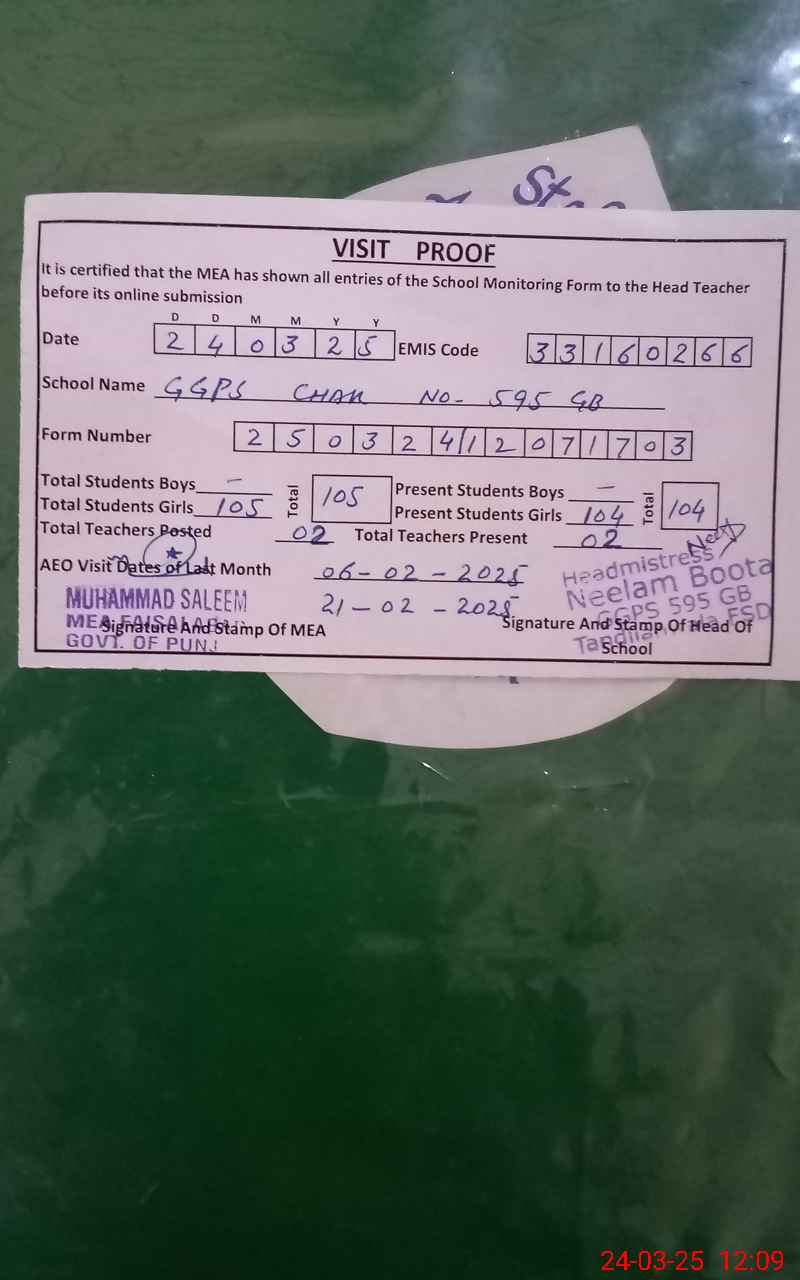 St
VISIT PROOF
It is certified that the MEA has shown all entries of the School Monitoring Form to the Head Teacher
before its online submission
D D M M Y Y
Date 2 4 0 3 2 5 EMIS Code 3 3 1 6 0 2 6 6
School Name GGPS CHAK NO- 595 GB
Form Number 2 5 0 3 2 4 1 2 0 7 1 7 0 3
Total Students Boys — Total 105 Present Students Boys — Total 104
Total Students Girls 105 Present Students Girls 104
Total Teachers Posted 02 Total Teachers Present 02
AEO Visit Dates of Last Month 06-02-2025
21-02-2025
MUHAMMAD SALEEM
MEA FAISALABA
GOVT. OF PUNJ
Signature And Stamp Of MEA
Headmistress
Neelam Boota
GGPS 595 GB
FSD
Signature And Stamp Of Head Of
School
24-03-25 12:09